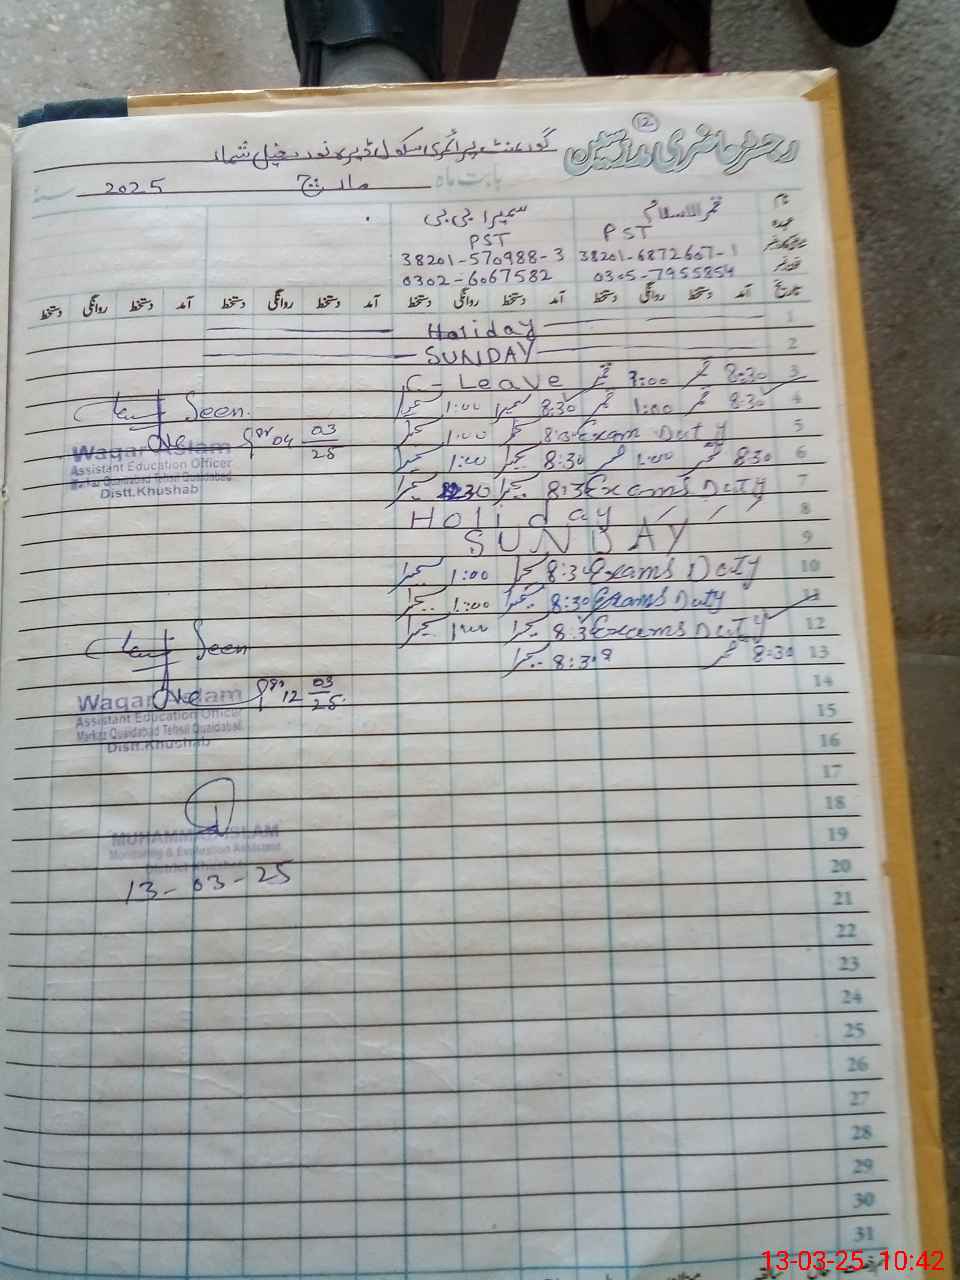 رجسٹر حاضری مدرسین
12
گورنمنٹ پرائمری سکول ڈیرہ نور خیل شمالی
بابت ماہ مارچ 2025
نام قمر الاسلام سمیرا بی بی
عہدہ PST PST
38201-6872607-1 38201-570988-3
0305-7955854 0302-6067582
تاریخ آمد دستخط روانگی دستخط آمد دستخط روانگی دستخط آمد دستخط روانگی دستخط آمد دستخط روانگی دستخط
1 Holiday
2 SUNDAY
3 8:30 3:00 C-Leave
4 8:30 1:00 8:30 1:00
5 Exam Duty 8:3 1:00
6 8:30 1:00 8:30 1:00
7 Exams Duty 8:3
8 Holiday
9 SUNDAY
10 Exams Duty 8:30 1:00
11 Exams Duty 8:30 1:00
12 Exams Duty 8:3 1:00
13 8:30 8:30
14
15
16
17
18
19
20
21
22
23
24
25
26
27
28
29
30
31
Seen
04 03 25
Waqar Aslam
Assistant Education Officer
Markaz Quaidabad Tehsil Quaidabad
Distt.Khushab
Seen
12 03 25
Waqar Aslam
Assistant Education Officer
Markaz Quaidabad Tehsil Quaidabad
Distt.Khushab
MUHAMMAD ASLAM
Monitoring & Evaluation Assistant
District Khushab
13-03-25
13-03-25 10:42